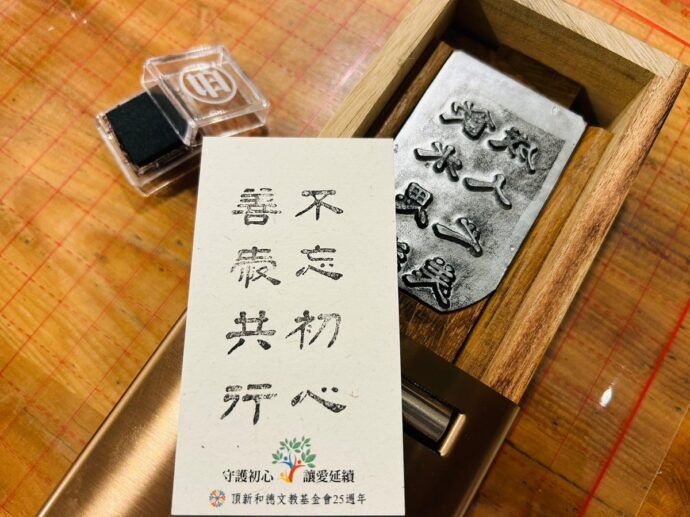 不忘初心
善 共行
守護初心 讓愛延續
頂新和德文教基金會25週年
印